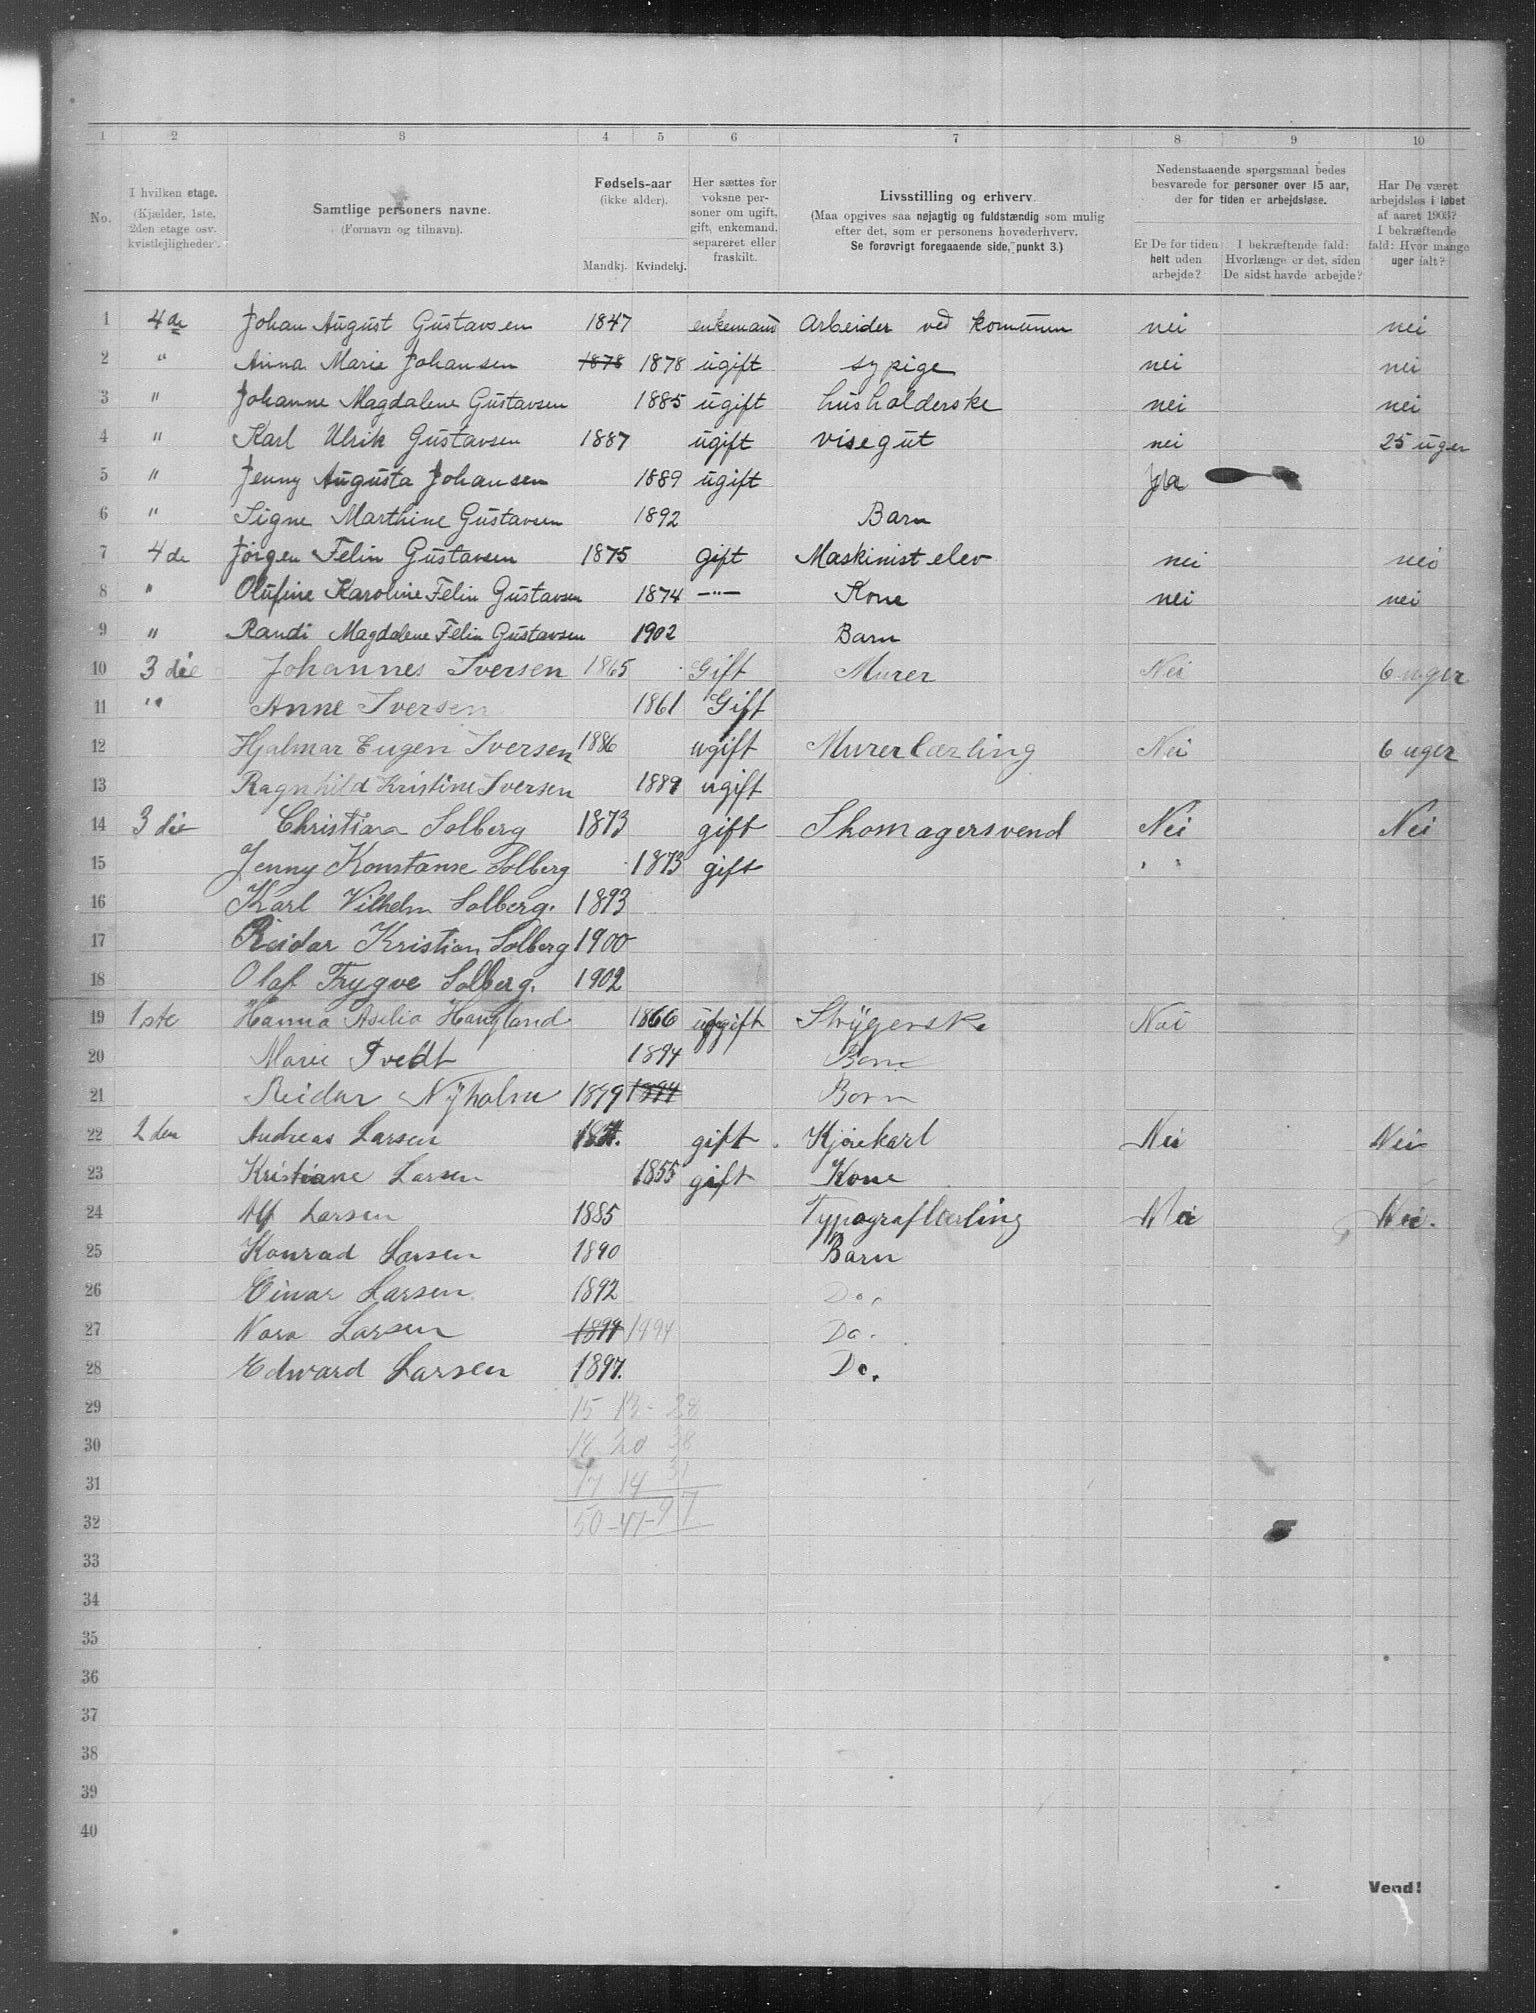 1 2 3 4 5 6 7 8 9 10
No.
I hvilken etage. (Kjælder, 1ste, 2den etage osv. kvistlejligheder).
Samtlige personers navne.
(Fornavn og tilnavn).
Fødsels-aar
(ikke alder).
Mandkj. Kvindekj.
Her sættes for voksne personer om ugift, gift, enkemand, separeret eller fraskilt.
Livsstilling og erhverv.
(Maa opgives saa nøjagtig og fuldstændig som mulig efter det, som er personens hovederhverv.
Se forøvrigt foregaaende side, punkt 3.)
Nedenstaaende spørgsmaal bedes besvarede for personer over 15 aar, der for tiden er arbejdsløse.
Er De for tiden helt uden arbejde?
I bekræftende fald: Hvorlænge er det, siden De sidst havde arbejde?
Har De været arbejdsløs i løbet af aaret 1903? I bekræftende fald: Hvor mange uger ialt?
1 4de Johan August Gustavsen 1847 enkemand Arbeider ved komunen nei nei
2 " Anna Marie Johansen 1878 1878 ugift sypige nei nei
3 " Johanne Magdalene Gustavsen 1885 ugift husholderske nei nei
4 " Karl Ulrik Gustavsen 1887 ugift visegut nei 25 uger
5 " Jenny Augusta Johansen 1889 ugift Ja
6 " Signe Marthine Gustavsen 1892 Barn
7 4de Jörgen Felin Gustavsen 1875 gift Maskinist elev nei nei
8 " Olufine Karoline Felin Gustavsen 1874 —"— Kone nei nei
9 " Randi Magdalene Felin Gustavsen 1902 Barn
10 3die Johannes Iversen 1865 Gift Murer Nei 6 uger
11 " Anne Iversen 1861 Gift
12 Hjalmar Eugen Iversen 1886 ugift Murerlærling Nei 6 uger
13 Ragnhild Kristine Iversen 1889 ugift
14 3die Christian Solberg 1873 gift Skomagersvend Nei Nei
15 Jenny Konstanse Solberg 1873 gift " "
16 Karl Vilhelm Solberg. 1893
17 Reidar Kristian Solberg 1900
18 Olaf Trygve Solberg. 1902
19 1ste Hanna Aselia Haugland 1866 ugift Strygerske Nei
20 Marie Tvedt 1894 Barn
21 Reidar Nÿholm 1899 1894 Barn
22 2den Andreas Larsen gift Kjörekarl Nei Nei
23 Kristiane Larsen 1855 gift Kone
24 Alf Larsen 1885 Typograflærling Nei Nei.
25 Konrad Larsen 1890 Barn
26 Einar Larsen 1892 Do.
27 Nora Larsen 1894 1894 Do.
28 Edward Larsen 1897. Do.
29 15 13 - 28
30 18 20 38
31 17 14 31
32 50 - 47 - 97
33
34
35
36
37
38
39
40
Vend!